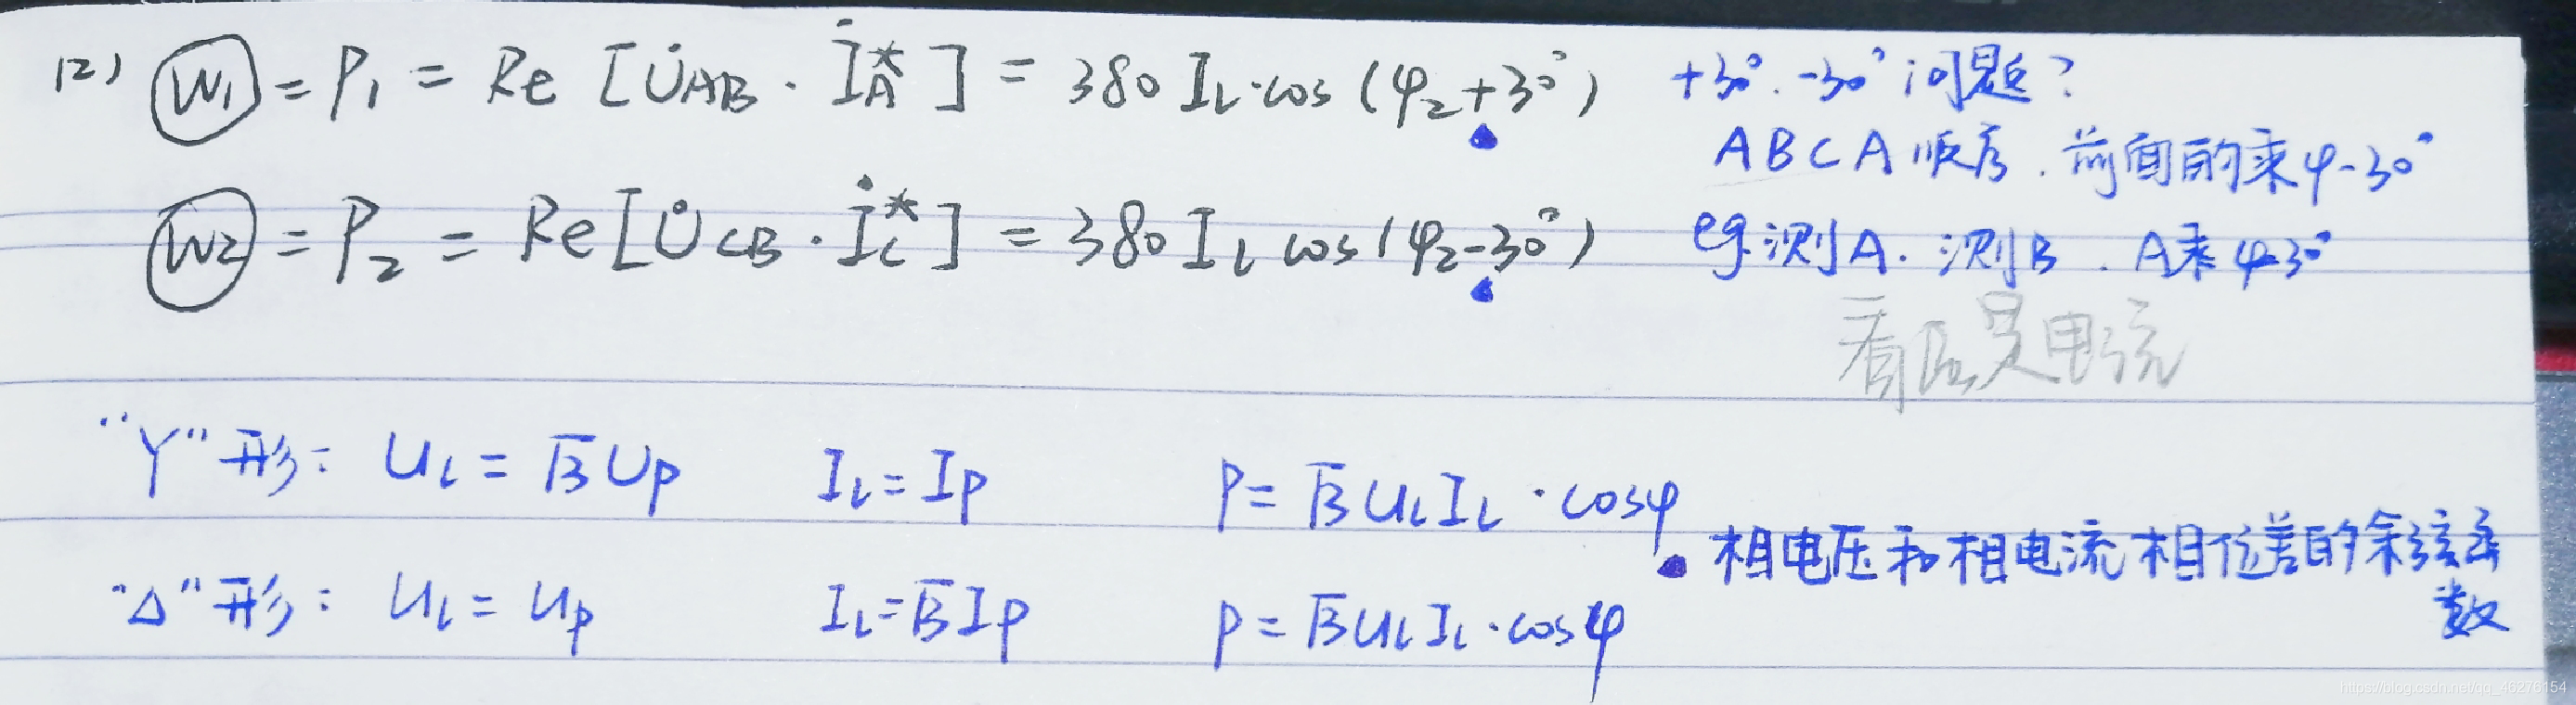 (2) W₁ = P₁ = Re [U̇AB · İA*] = 380 IL·cos (φ₂+30°) +30°. -30° 问题?
ABCA 顺序. 前面的来 φ-30°
W2 = P₂ = Re[U̇CB · İC*] = 380 IL cos(φ₂-30°) eg. 测A. 测B. A来 φ-30°
看 是电流
"Y"形: UL = √3 Up IL = Ip P = √3 ULIL · cosφ
相电压和相电流相位差的余弦函数
"Δ"形: UL = Up IL = √3 Ip P = √3 ULIL · cosφ
https://blog.csdn.net/qq_46276154